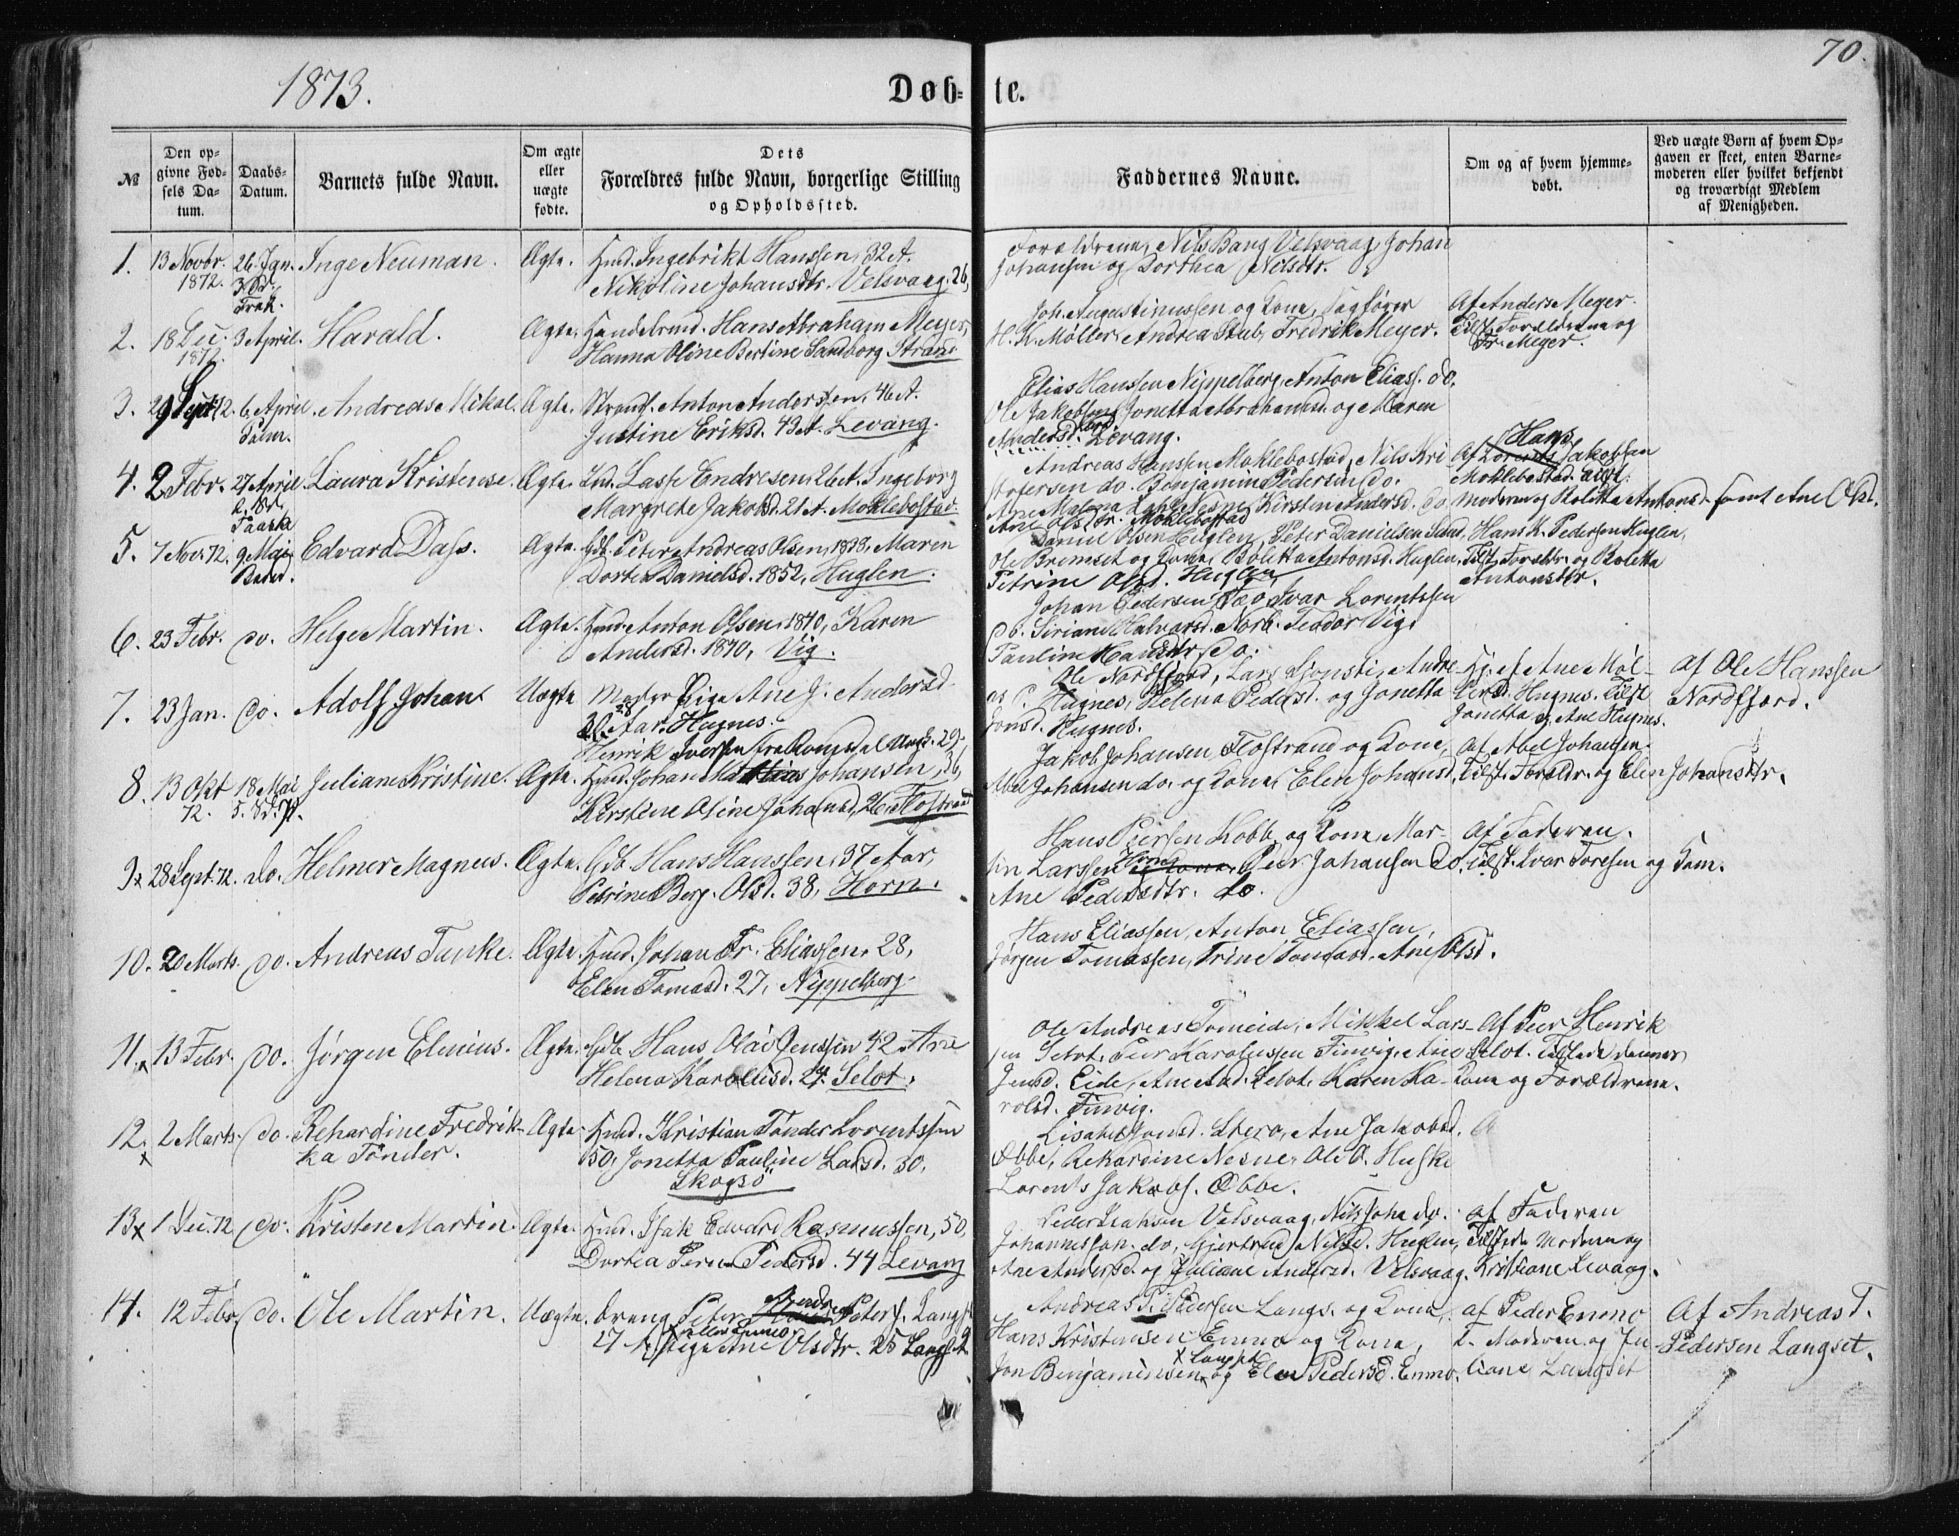 70.
1873.
Døb- te.
№
Den opgivne Fødsels Datum.
Daabs-Datum.
Barnets fulde Navn.
Om ægte eller uægte fødte.
Dets Forældres fulde Navn, borgerlige Stilling og Opholdssted.
Faddernes Navne.
Om og af hvem hjemmedøbt.
Ved uægte Børn af hvem Opgaven er skeet, enten Barnemoderen eller hvilket bekjendt og troværdigt Medlem af Menigheden.
1. 13 Novbr. 26 Jan. Inge Neuman. Ægte. Hmd. Ingebrikt Hanssen, 32 A.
1872. Nikoline Johansdtr. Velsvaag. 26,
Forældrene, Nils Bang Velsvaag, Johan
Johansen og Dorthea Nilsdtr.
2. 18 Dec. 3 April. Harald. Ægte. Handelsmd. Hans Abraham Meyer,
1872. Hanna Oline Bertine Sandborg Strand
Joh. Augustinussen og Kone, Sagfører
H. K. Møller, Andrea Stub, Fredrik Meyer.
Af Anders Meyer.
Tilst. Forældrene og
Fr. Meyer.
3. 29 Sept. 72. 6 April. Andreas Mikal. Ægte. Strands. Anton Andersen, 46 A.
Justine Eriksd. 43 A. Levang.
Elias Hanssen Nippelberg, Anton Eliass. do.
Ole Jakobsen, Jonetta Abrahamsd. og Maren
Andersd. Levang.
4. 2 Febr. 27 April Laura Kristense. Ægte. Ind. Lasse Endresen, 26 A. Ingeborg
Margrete Jakobsd. 21 A. Moklebostad.
Andreas Hanssen Moklebostad, Nils Kri-
stofersen do. Benjamin Pedersen do.
Ane Malena Nesne, Kirsten Andersd. do
Ane Olsdtr. Moklebostad
Af Hans Jakobsen
Moklebostad. tilst.
Moderen og Boletta Antonsd. samt Ane Olsd.
5. 7 Nov. 72. 9 Mai Edvard Dass. Ægte. Gdb. Peter Andreas Olsen, 1838, Maren
Dortea Danielsd. 1852, Huglen.
Daniel Olsen Huglen, Peter Danielsen Sund,
Ole Bremset og Kone, Boletta Antonsd. Huglen,
Petrine Olsd. Huglen
Hans K. Pedersen Huglen,
Tilst. Forældr. og Boletta
Antonsdtr.
6. 23 Febr. do. Helge Martin. Ægte. Hmd. Anton Olsen, 1840, Karen
Andersd. 1840, Vig.
Johan Pedersen Ivar Lorentssen
Pauline Hansdtr. do.
7. 23 Jan. do. Adolf Johan Uægte Moder Pige Ane J. Andersd.
28 Aar. Hugnes.
Henrik Iversen fra Romsdal Ungk. 29.
Ole Nordfjord, Lars Andre-
as P. Hugnes, Helena Pedersd. og Jonetta
Jonsd. Hugnes.
Hj. af Ane Møl-
lersd. Hugnes. Tilst
Jonetta og Ane Hugnes.
Af Ole Hanssen
Nordfjord.
8. 13 Okt 18 Mai Juliane Kristine. Ægte. Hmd. Johan Johansen, 36,
72. Kirstine Oline Johansd. 26 Flostrand
Jakob Johansen Flostrand og Kone,
Abel Johansen do. og Kone, Elen Johansd.
Af Abel Johansen.
Tilst. Forældr. og Elen Johansdtr.
9. 28 Sept. 72. do. Helmer Magnus. Ægte. Gdb. Hans Hanssen, 37 Aar,
Petrine Berg. Olsd. 38, Horn.
Hans Peersen Kobb. og Kone, Mar-
tin Larssen Horn, Peer Johansen do.
Ane Pedersdtr. do.
Af Faderen.
Tilst. Ivar Toresen og Kone.
10. 20 Marts. do. Andreas Tunke. Ægte. Hmd. Johan Fr. Eliassen, 28,
Elen Tomasd. 27, Nippelberg.
Hans Eliassen, Anton Eliassen,
Jørgen Tomassen, Trine Tomasd. Ane Olsd.
11. 13 Febr. do. Jørgen Elenius. Ægte. Gdb. Hans Olai Jenssen 42 Ane
Helena Karolusd. 24. Selot.
Ole Andreas Tomeide, Mikkel Lars-
sen Selot, Peer Karolussen Finvig, Ane
Jensd. Eide, Ane And. Selot, Karen Ka-
rolsd. Finvig.
Af Peer Henrik
Selot. Tilstede dennes
Kone og Forældrene.
12. 2 Marts. do. Rehardine Fredrik- Ægte. Hmd. Kristian Tønder Lorentssen
ka Tønder. 50, Jonetta Pauline Larsd. 30,
Skogsø
Lisabet Jonsd. Stero, Ane Jakobsd.
Øbbe, Rekardine Nesne, Ole O. Huske
Lorents Jakobs. Øbbe.
13. 1 Dec. 72. do. Kristen Martin. Ægte. Hmd. Isak Edvard Rasmussen, 50,
Dortea Pern. Pedersd. 44 Levang
Peder Isaksen Velsvaag, Nils Joha do.
Johannessen do, Gjertrud Nilsd. Huglen,
Ane Andersd. og Juliane Andersd. Velsvaag.
af Faderen
Tilstede Moderen og
Kristiane Levaag.
14. 12 Febr. do. Ole Martin. Uægte. Dreng Peter Andreas Peters. Langs.
27 A. Pige Ane Olsdtr. 25 Langset
Andreas P. Pedersen Langs. og Kone,
Hans Kristensen Emmo og Kone,
Jon Benjaminsen Langset og Elen Pedersd. Emmo.
af Peder Emmo
T. Moderen og Ju-
liane Langset
Af Andreas T.
Pedersen Langset.